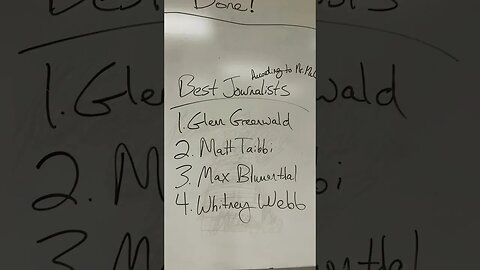 Done!
According to
Best Journalists
1. Glenn Greenwald
2. Matt Taibbi
3. Max Blumenthal
4. Whitney Webb